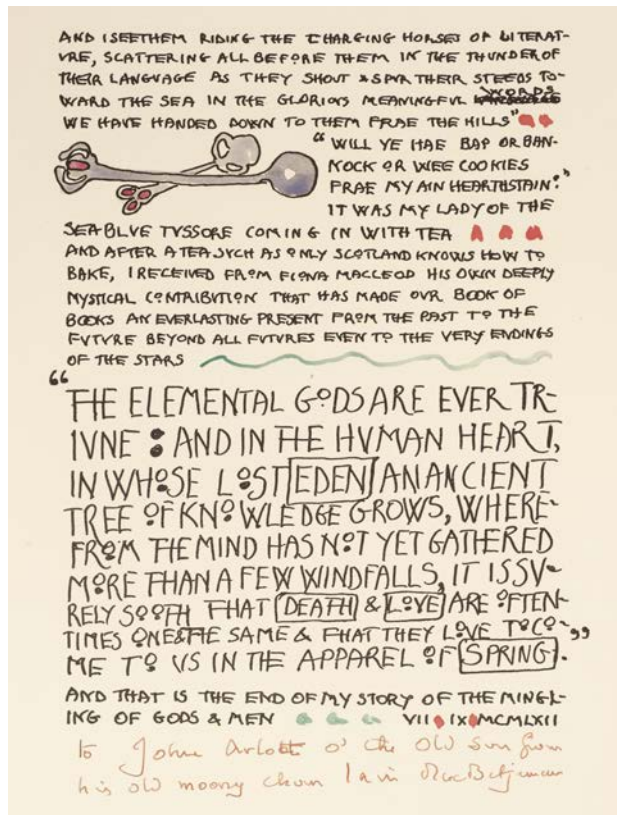 AND I SEE THEM RIDING THE CHARGING HORSES OF LITERAT-
VRE, SCATTERING ALL BEFORE THEM IN THE THUNDER OF
THEIR LANGUAGE AS THEY SHOUT & SPVR THEIR STEEDS TO-
WARD THE SEA IN THE GLORIOVS MEANINGFVL WORDS
WE HAVE HANDED DOWN TO THEM FRAE THE HILLS"
"WILL YE HAE BAP OR BAN-
NOCK OR WEE COOKIES
FRAE MY AIN HEARTHSTAIN?"
IT WAS MY LADY OF THE
SEA BLVE TVSSORE COMING IN WITH TEA
AND AFTER A TEA SVCH AS ONLY SCOTLAND KNOWS HOW TO
BAKE, I RECEIVED FROM FIONA MACLEOD HIS OWN DEEPLY
MYSTICAL CONTRIBVTION THAT HAS MADE OVR BOOK OF
BOOKS AN EVERLASTING PRESENT FROM THE PAST TO THE
FVTVRE BEYOND ALL FVTVRES EVEN TO THE VERY ENDINGS
OF THE STARS
"THE ELEMENTAL GODS ARE EVER TR-
IVNE : AND IN THE HVMAN HEART,
IN WHOSE LOST EDEN AN ANCIENT
TREE OF KNOWLEDGE GROWS, WHERE-
FROM THE MIND HAS NOT YET GATHERED
MORE THAN A FEW WINDFALLS, IT IS SV-
RELY SOOTH THAT DEATH & LOVE ARE OFTEN-
TIMES ONE & THE SAME & THAT THEY LOVE TO CO-
ME TO VS IN THE APPAREL OF SPRING."
AND THAT IS THE END OF MY STORY OF THE MINGL-
ING OF GODS & MEN VII IX MCMLXII
to John Arlott o' the Old Sun from
his old moony chum Iain MacBetjeman